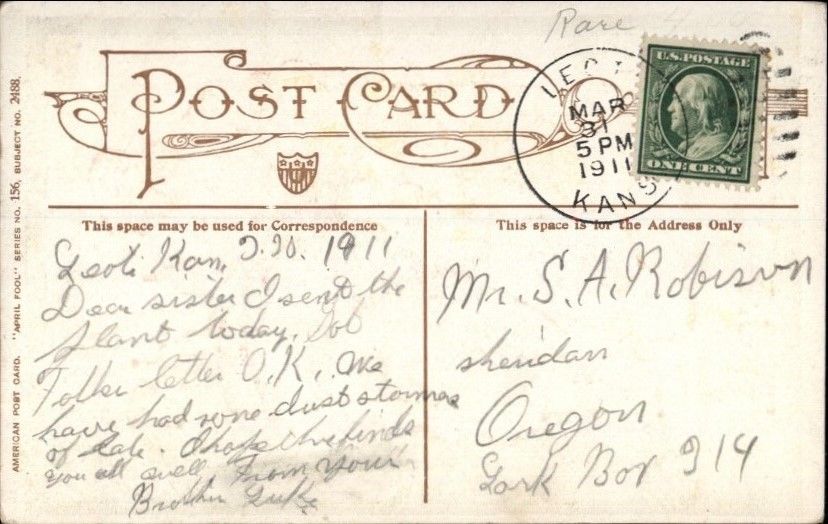 Rare
POST CARD
LEOTI
MAR
31
5 PM
1911
KANS
U.S. POSTAGE
ONE CENT
AMERICAN POST CARD. "APRIL FOOL" SERIES NO. 156, SUBJECT NO. 2488.
This space may be used for Correspondence
This space is for the Address Only
Leoti Kan, 1911
Dear sister I sent the
plant today. Got
Folks letter O.K. We
have had some dust storms
of late. I hope this finds
you all well From Your
Brother Luke
Mr. S. A. Robison
sheridan
Oregon
Lock Box 314